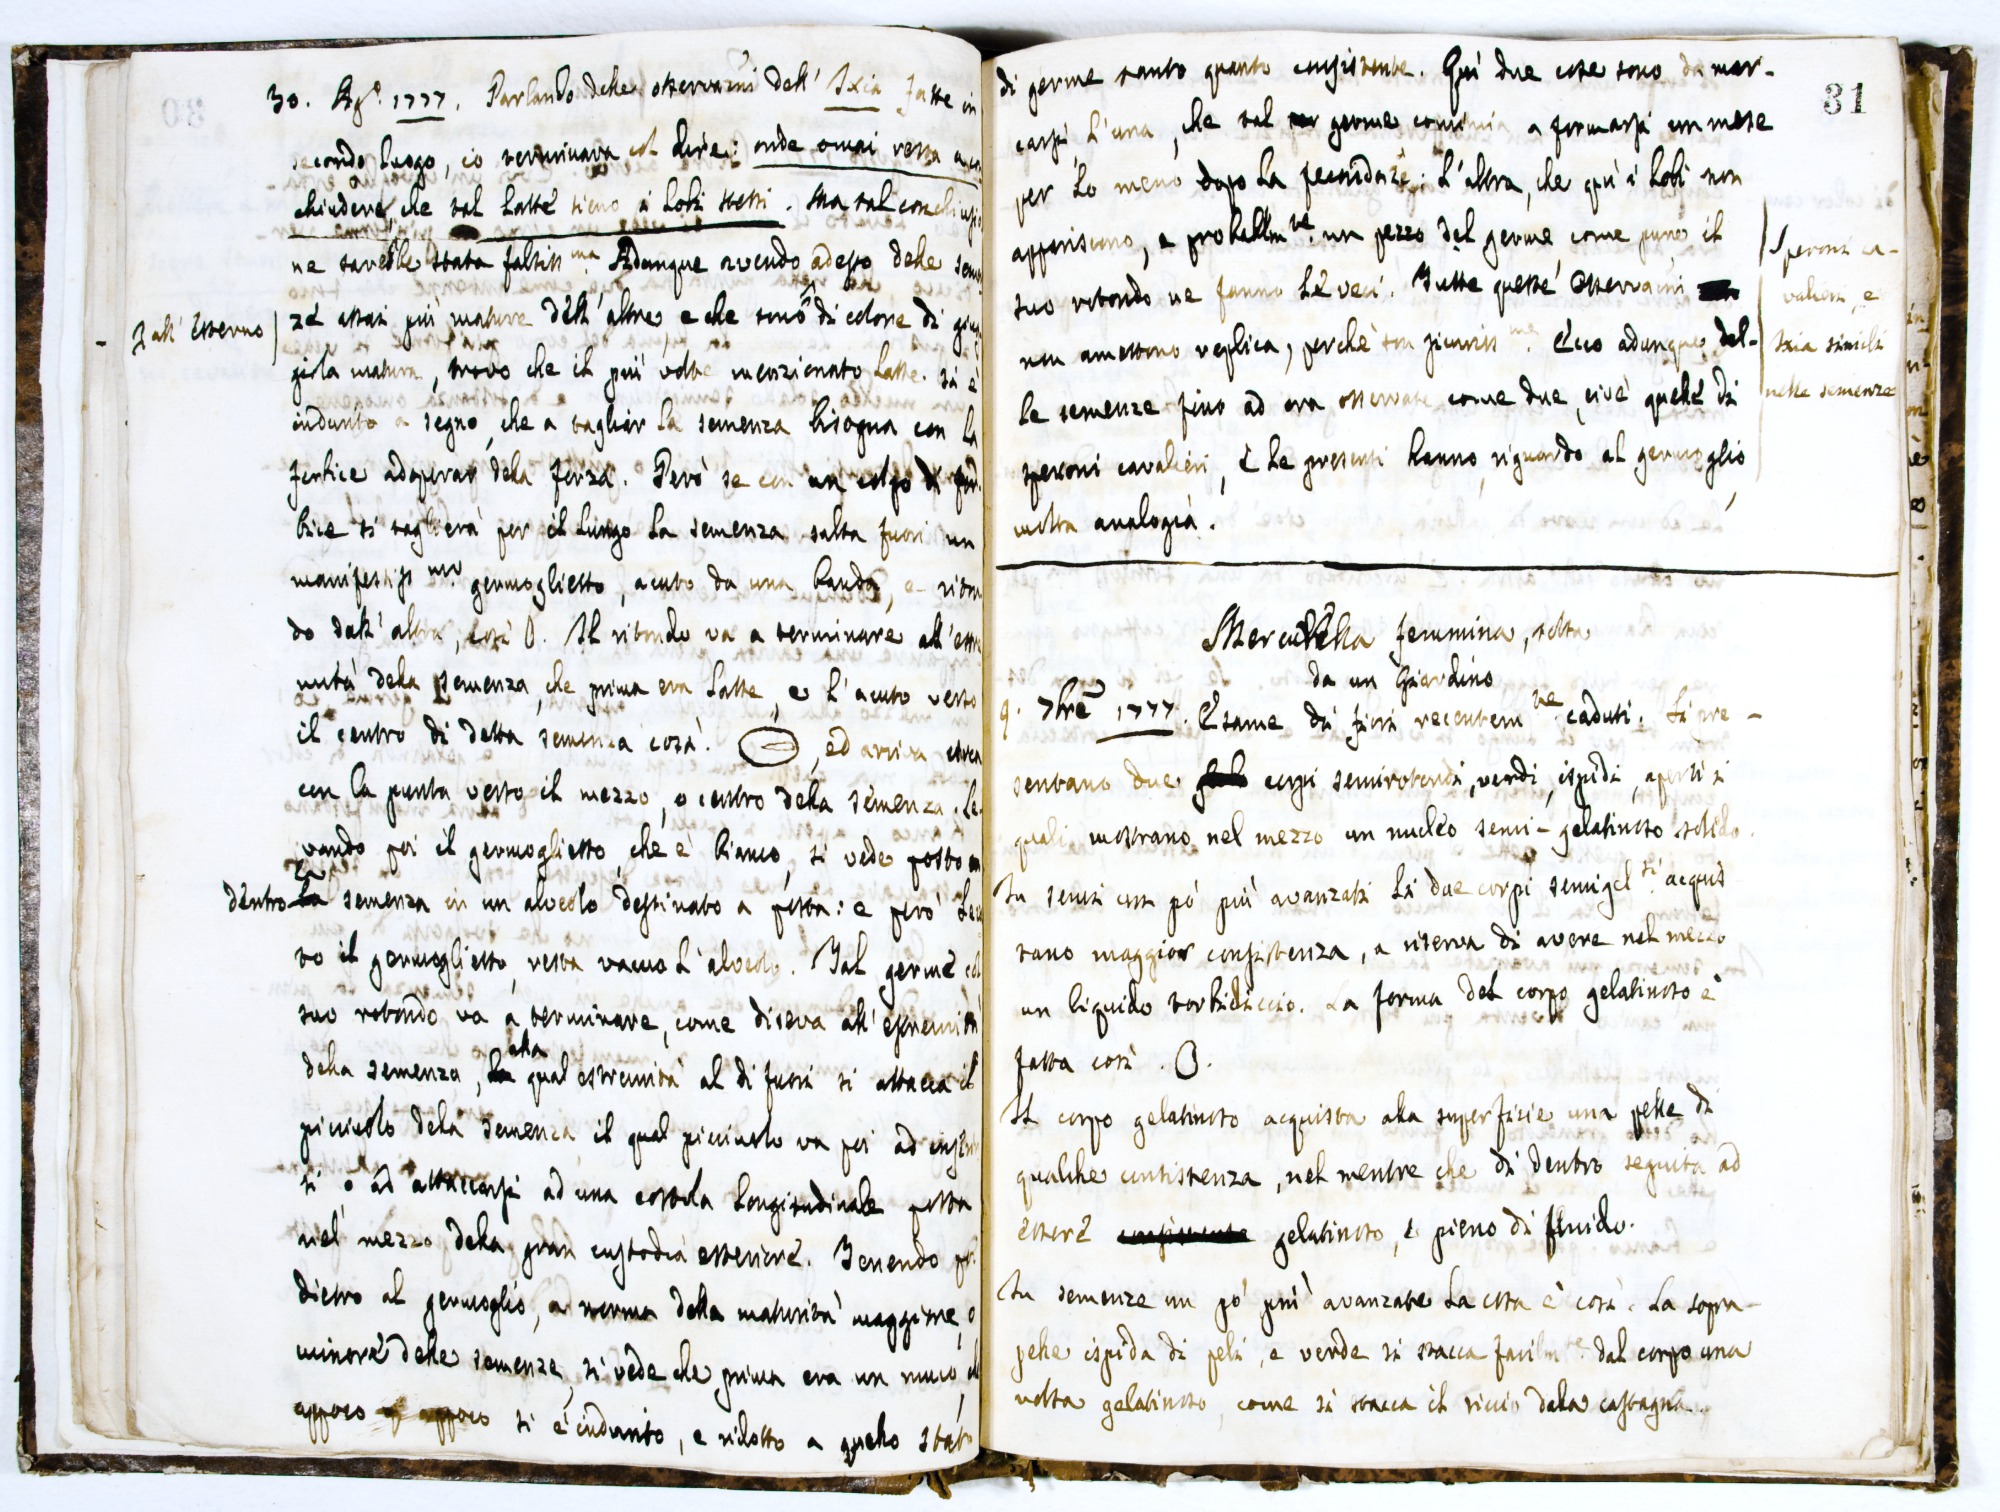 30. Ag.º 1777. Parlando delle osservazni dell' Ixia fatte in
secondo luogo, io terminava col dire: onde omai resta a con
chiudere che tal latte sieno i lobi stessi. Ma tal conclusio
ne sarebbe stata falsiss.ma Adunque avendo adesso delle semen
ze assai più mature dell' altre, e che sono di colore di giug
all' esterno
giola matura, trovo che il più volte menzionato latte si è
indurito a segno, che a tagliar la semenza bisogna con la
forbice adoperar della forza. Però se con un colpo di for
bice si taglierà per il lungo la semenza salta fuori un
manifestiss.mo germoglietto, acuto da una banda, e riton
do dall' altra, così 0. Il ritondo va a terminare all' estre
mità della semenza, che prima era latte, e l' acuto verso
il centro di detta semenza così. , ed arriva circa
con la punta verso il mezzo, o centro della semenza. Le
vando poi il germoglietto che è bianco, si vede posto
dentro la semenza in un alveolo destinato a posta: e però leva
to il germoglietto, resta vacuo l' alveolo. Tal germe col
suo rotondo va a terminare, come diceva all' estremità
della semenza, alla qual estremità al di fuori si attacca il
picciolo della semenza il qual picciuolo va poi ad inserir
si o ad attaccarsi ad una costola longitudinale posta
nel mezzo della gran custodia esteriore. Tenendo poi
dietro al germoglio, a norma della maturità maggiore, o
minore delle semenze, si vede che prima era un muco, che
appoco appoco si è indurito, e ridotto a quello stato
31
di germe tanto quanto consistente. Quì due cose sono da mar-
carsi, l' una, che tal germe comincia a formarsi un mese
per lo meno dopo la fecondaze; l' altra, che quì i lobi non
appariscono, e probabilm.te un pezzo del germe, come pure il
suo rotondo ne fanno le veci. Tutte queste osservazni
non amettono replica, perchè son sicuriss.me. Ecco adunque, del-
le semenze fino ad ora osservate come due, cioè quelle di
speroni cavalieri, e le presenti hanno, riguardo al germoglio
molta analogia.
Speroni ca-
valieri, e
Ixia simili
nelle semenze
Mercurella femmina, colta
da un Giardino
9. 7bre 1777. Esame di fiori recentem.te caduti. Li pre-
sentano due corpi semirotondi, verdi, ispidi, aperti i
quali mostrano nel mezzo un nucleo semi-gelatinoso solido.
In semi un pò più avanzati li due corpi semigel.si acquis
tano maggior consistenza, a riserva di avere nel mezzo
un liquido torbidiccio. La forma del corpo gelatinoso è
fatta così. 0.
Il corpo gelatinoso acquista alla superficie una pelle di
qualche consistenza, nel mentre che di dentro seguita ad
essere gelatinoso, e pieno di fluido.
In semenze un pò più avanzate la cosa è così. La sopra-
pelle ispida di peli, e verde si stacca facilm.te dal corpo una
volta gelatinoso, come si stacca il riccio dalla castagna.